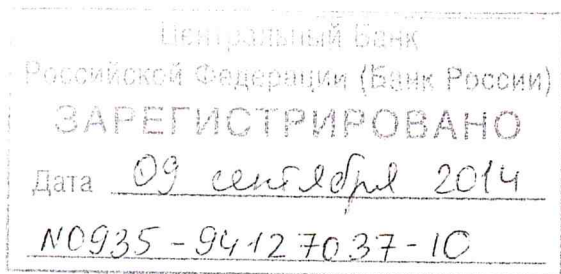 Центральный Банк
Российской Федерации (Банк России)
ЗАРЕГИСТРИРОВАНО
Дата 09 сентября 2014
№0935-94127037-1С